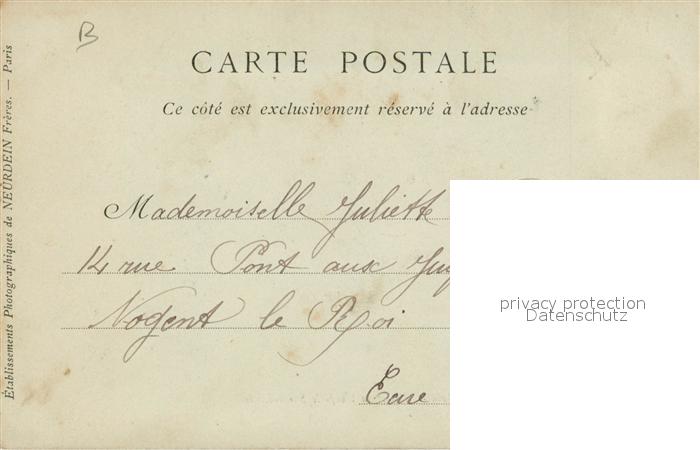 B
CARTE POSTALE
Ce côté est exclusivement réservé à l'adresse
Établissements Photographiques de NEURDEIN Frères. — Paris
Mademoiselle Juliette
14 rue Pont aux
Nogent le Roi
Eure
privacy protection
Datenschutz